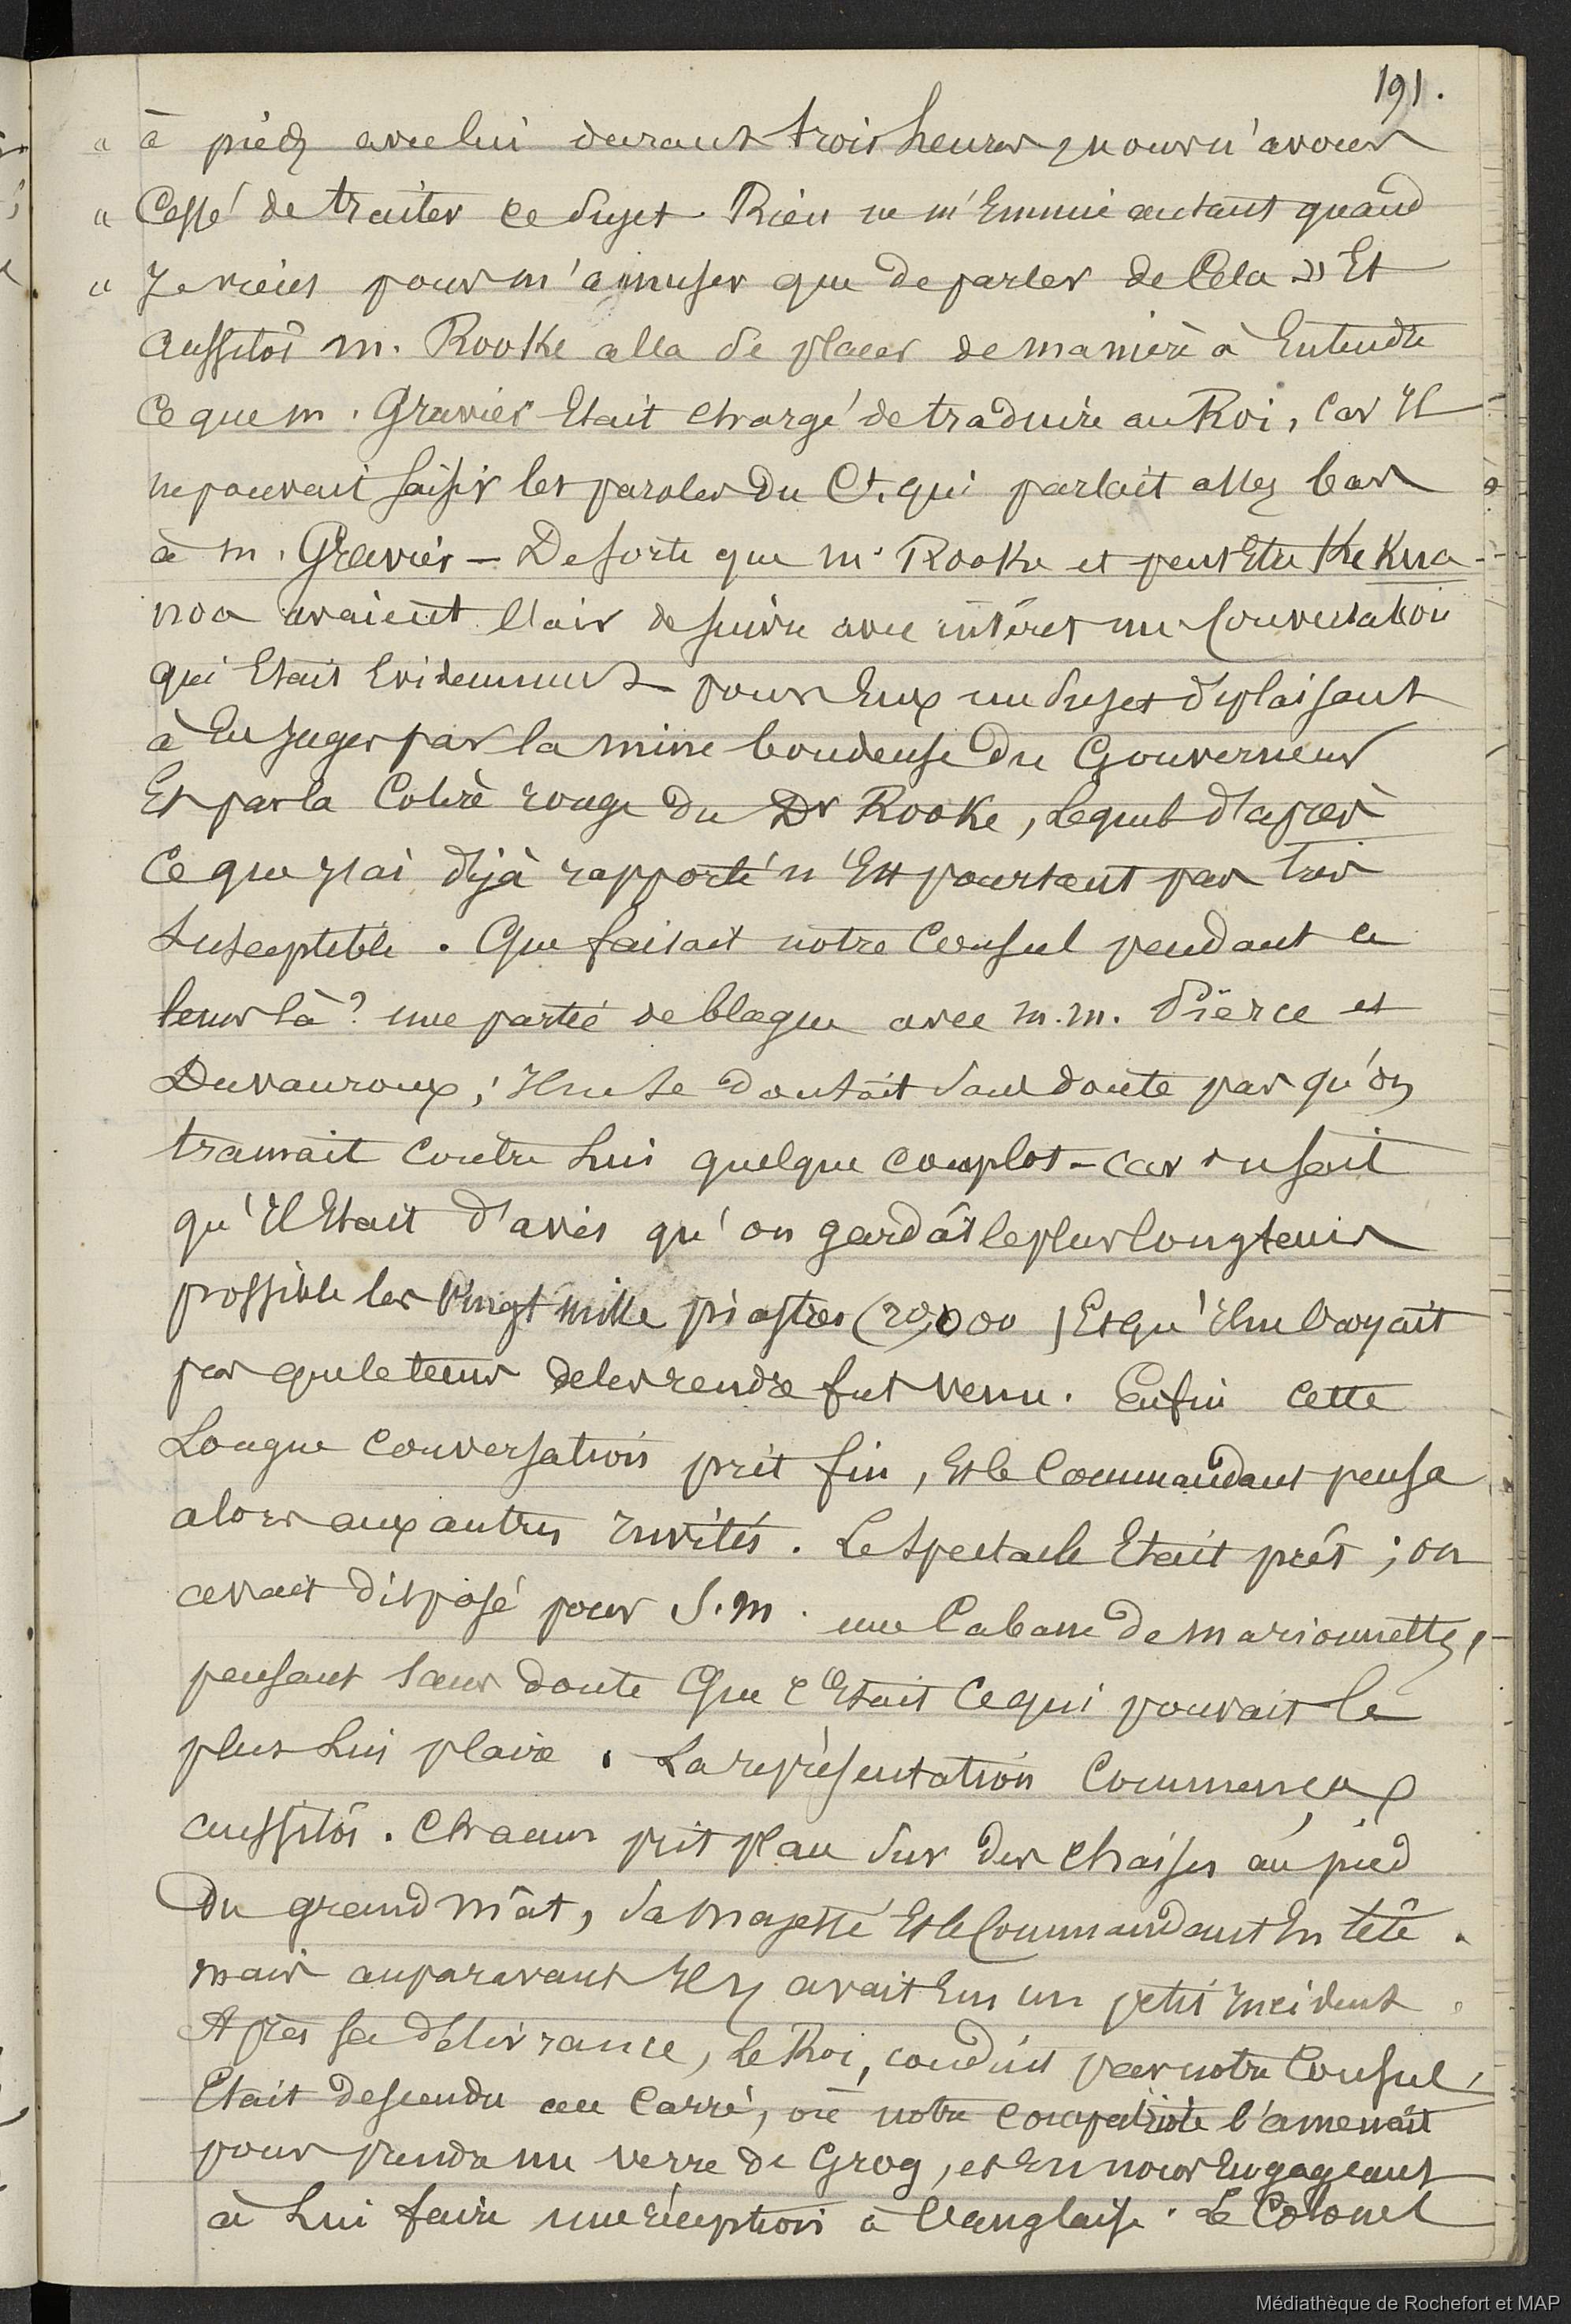 191.
" à pièd avec lui durant trois heures, nous n'avons
" Cessé de traiter ce sujet. Rien ne m'Ennuie autant quand
" Je viens pour m'amuser que de parler de Cela » Et
aussitôt m. Rooke alla se placer de manière à Entendre
ce que m. Gravier Etait chargé de traduire au Roi, car Il
ne pouvait saisir les paroles du Ct. qui parlait assez bas
à m. Gravier – De sorte que mr Rooke et peut Etre Ke Kua-
noa avaient l'air de suivre avec intéret une Conversation
qui Etait Evidemment pour Eux un sujet déplaisant
à En juger par la mine boudeuse du Gouverneur
Et par la Colère rouge du Dr Rooke, lequel d'après
ce que j'ai déjà rapporté n'Est pourtant pas très
susceptible. Que faisait notre Consul pendant ce
tems là? une partie de blague avec m.m. Piërce et
Duvauroux; Il ne se doutait sans doute pas qu'on
tramait contre Lui quelque complot – car on sait
qu'Il Etait d'avis qu'on gardât le plus longtems
possible les Vingt mille piastres (20,000) Et qu'Il ne Croyait
pas que le tems de les rendre fut venu. Enfin cette
Longue conversation prit fin, Et le Commandant pensa
alors aux autres Invités. Le spectacle Etait prêt; on
avait disposé pour S.M. une Cabane de marionnettes,
pensant sans doute Que c'Etait ce qui pouvait le
plus Lui plaire. La représentation Commença
aussitôt. Chacun prit place sur des chaises au pied
Du grand mât, sa Majesté Et le Commandant En tête.
mais auparavant Il y avait Eu un petit Incident.
Après sa délivrance, Le Roi, conduit par notre Consul,
Etait descendu au Carré, où notre compatriote l'amenait
pour prendre un verre de Grog, et En nous Engageant
à Lui faire une réception à l'anglaise. Le Colonel
Médiathèque de Rochefort et MAP